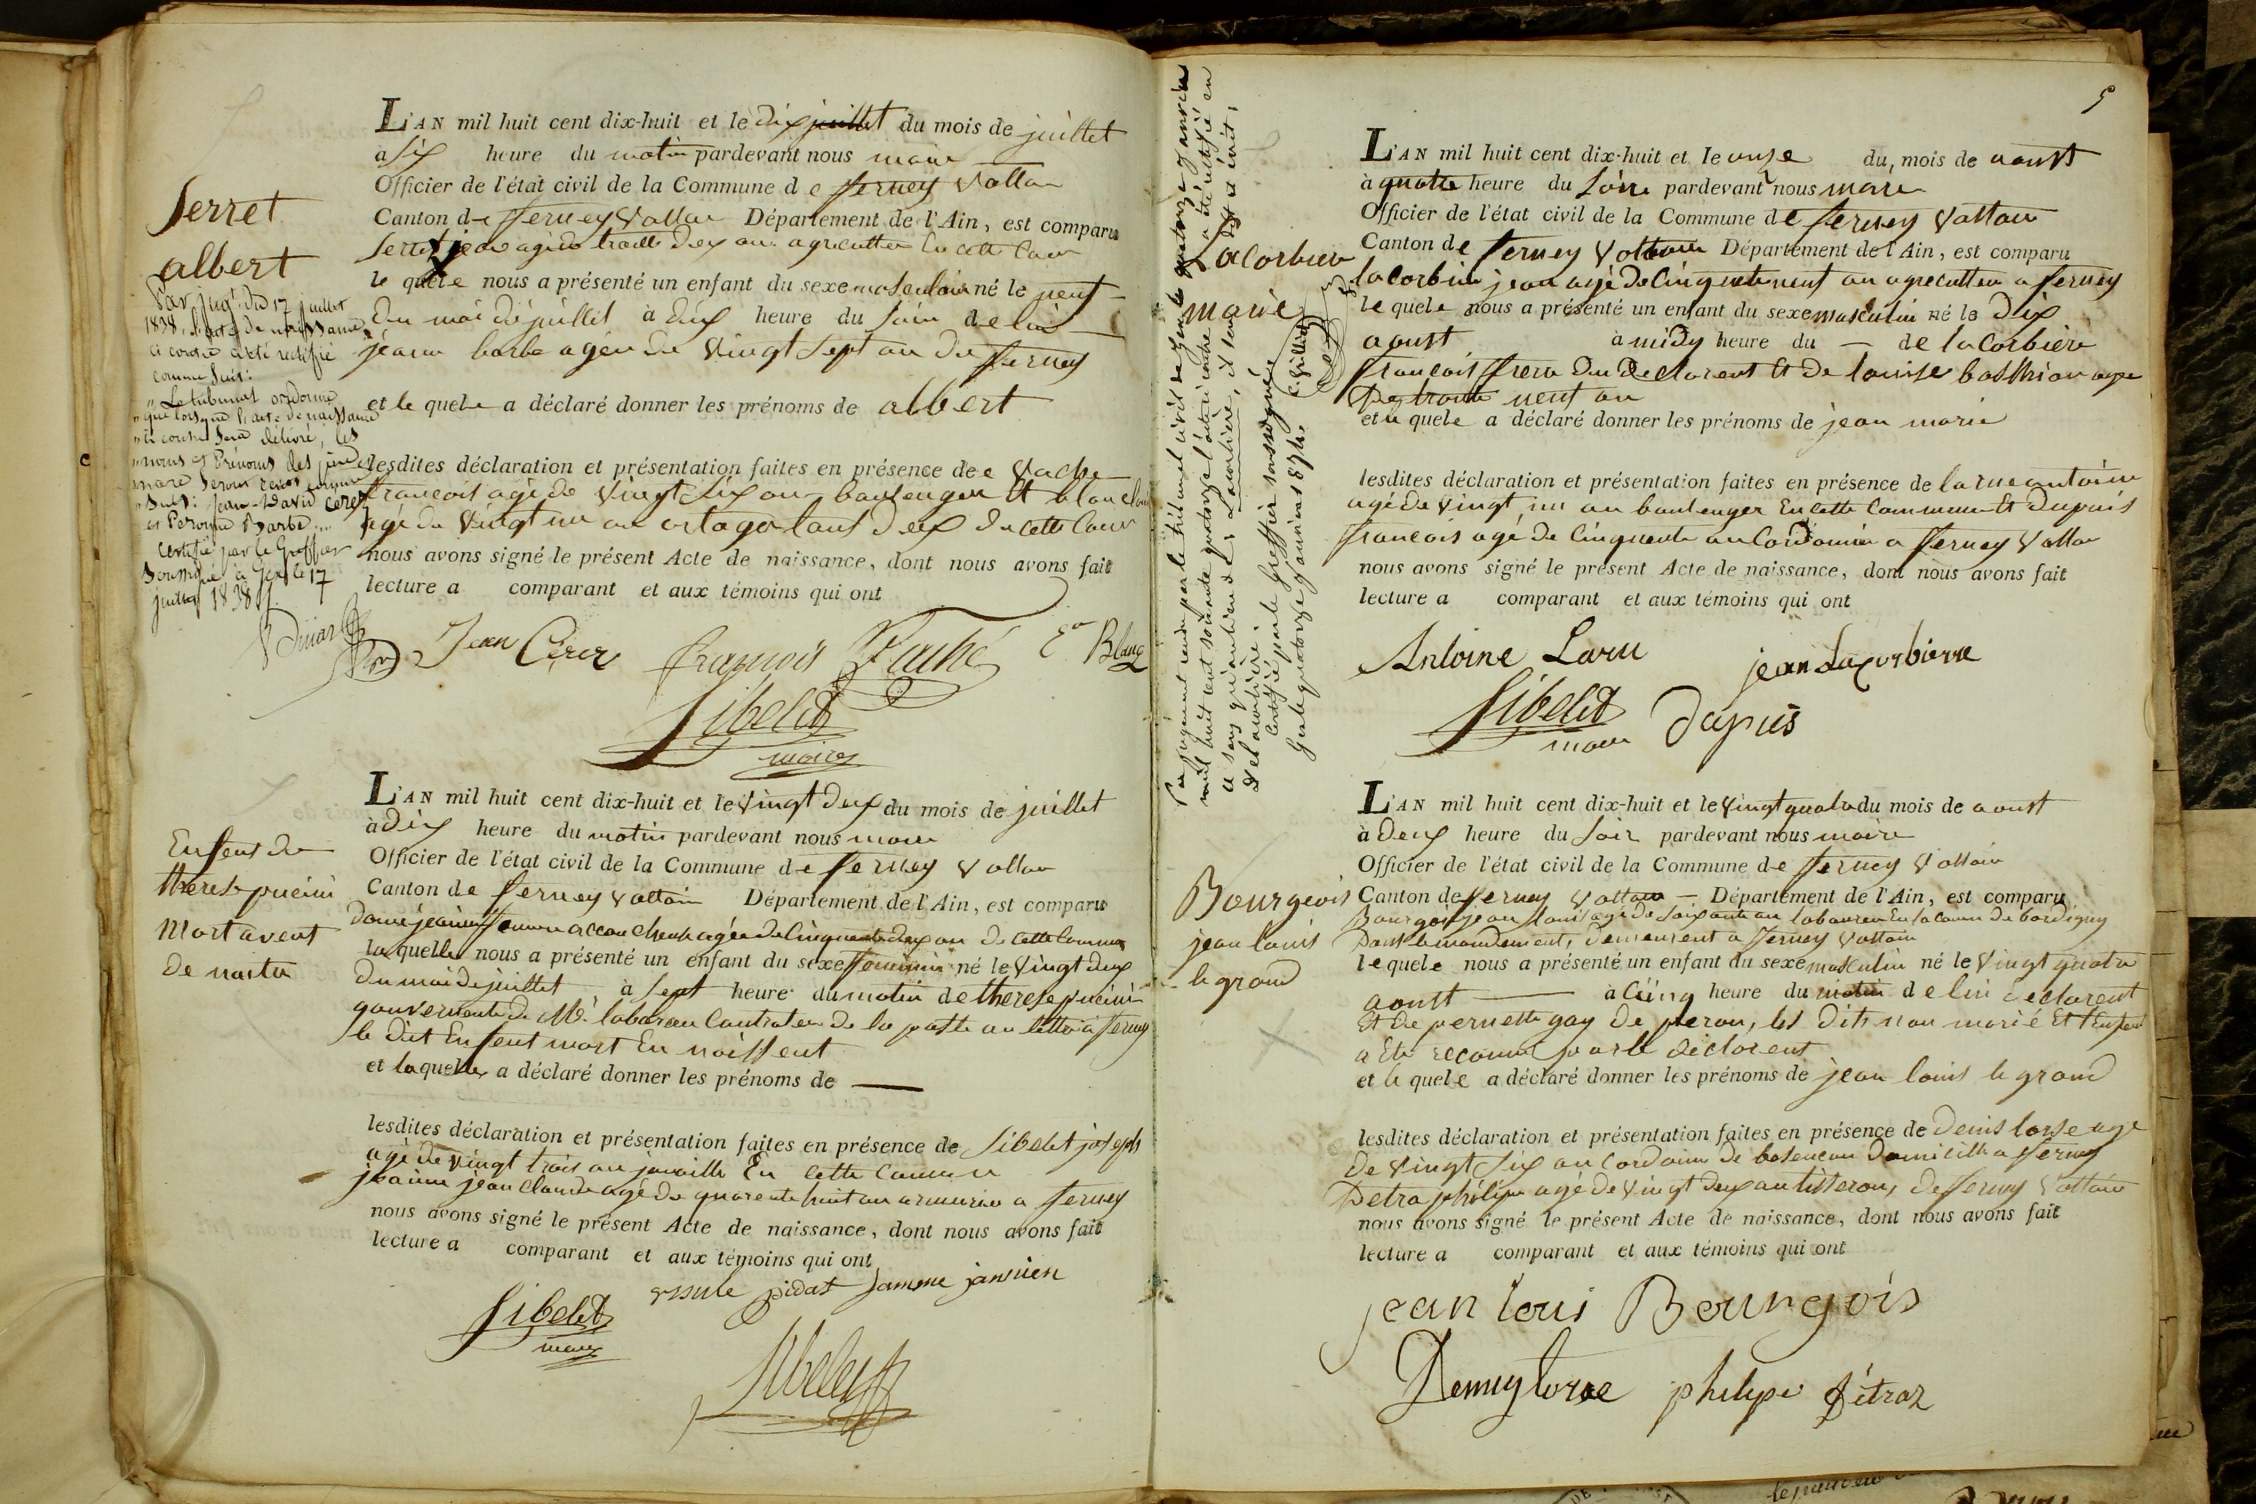 Serret
albert
Par jugt du 17 juillet
1838, l'acte de naissance
ci contre a été rectifié
comme suit:
„ Le tribunal ordonne
„ que lorsque l'acte de naissance
„ ci contre sera délivré, les
„ noms et Prénoms des
„ Jean-David Cerer
et Barbe „
Certifié par le Greffier
soussigné à Gex le 17
juillet 1838
L'AN mil huit cent dix-huit et le dix juillet du mois de juillet
à six heure du matin pardevant nous maire
Officier de l'état civil de la Commune de ferney Voltair
Canton de ferney Voltair Département de l'Ain, est comparu
Serret jean agé de trante dex an agriculteur en cette Com
le quele nous a présenté un enfant du sexe masculain né le neuf
du moi de juillet à dix heure du soir de lui
jeann barbe agée de vingt sept an de ferney
et le quele a déclaré donner les prénoms de albert
lesdites déclaration et présentation faites en présence de Vache
francois agé de vingt six an boulenger Et blanc
agé de vingt un an ortoger tout deux de cette Com
nous avons signé le présent Acte de naissance, dont nous avons fait
lecture a comparant et aux témoins qui ont
Jean Cerer francois Vaché Blanc
Sibelet
maire
Enfent de
therese pucini
Mort avent
de naitre
L'AN mil huit cent dix-huit et le vingt deux du mois de juillet
à dix heure du matin pardevant nous maire
Officier de l'état civil de la Commune de ferney Voltair
Canton de ferney voltair Département de l'Ain, est comparu
dame femme accoucheuse agée de cinquante dex an de cette Commune
laquelle nous a présenté un enfant du sexe feminin né le vingt deux
du moi de juillet à sept heure du matin de therese pucini
gouvernente de Mr. labarau Controleur de la poste au lettre à ferney
le dit Enfent mort En naissent
et laquelle a déclaré donner les prénoms de —
lesdites déclaration et présentation faites en présence de Sibelet joseph
agé de vingt trois an En cette Commune
jean claude agé de quarente huit an armurier a ferney
nous avons signé le présent Acte de naissance, dont nous avons fait
lecture a comparant et aux témoins qui ont
Sibelet
maire
Sibelet
5
Lacorbiere
marie
Par jugement rendu par le tribunal civil de Gex le quatorze janvier
mil huit cent soixante quatorze l'acte ci contre a été rectifié en
ce sens qu'au lieu de Lacorbière, il sera dit et écrit,
Delacorbière.
Certifié par le Greffier soussigné
Gex le quatorze janvier 1874.
L'AN mil huit cent dix-huit et le onze du mois de aoust
à quatre heure du soire pardevant nous maire
Officier de l'état civil de la Commune de ferney Voltair
Canton de ferney Voltair Département de l'Ain, est comparu
lacorbiere jean agé de cinquente neuf an agriculteur a ferney
le quele nous a présenté un enfant du sexe masculin né le dix
aoust à midy heure du — de lacorbiere
francois frere du declarent Et de louise agee
de trante neuf an
et le quele a déclaré donner les prénoms de jean marie
lesdites déclaration et présentation faites en présence de larue antoine
agé de vingt un an boulenger En cette Commune Et dupuis
francois agé de cinquente an Cordonnier a ferney Voltair
nous avons signé le présent Acte de naissance, dont nous avons fait
lecture a comparant et aux témoins qui ont
Antoine Laru jean Lacorbiere
Sibelet dupuis
maire
Bourgeois
jean louis
le grand
L'AN mil huit cent dix-huit et le vingt quatre du mois de aoust
à deux heure du soir pardevant nous maire
Officier de l'état civil de la Commune de ferney Voltair
Canton de ferney Voltair — Département de l'Ain, est comparu
Bourgois jean louis agé de soixante an laboureur En la comm de bordigny
dans le mandement, demeurent a ferney voltair
le quele nous a présenté un enfant du sexe masculin né le vingt quatre
aoust — à cinq heure du matin de lui declarent
Et de pernette gay de peron, les dits non marié Et l'Enfent
a Ete reconnu par le declarent
et le quele a déclaré donner les prénoms de jean louis le grand
lesdites déclaration et présentation faites en présence de denis lorse age
de vingt six an cordonnier de besencon domicilié a ferney
Petra philipe agé de vingt deux an de ferney Voltair
nous avons signé le présent Acte de naissance, dont nous avons fait
lecture a comparant et aux témoins qui ont
jean louis Bourgois
Denuy lorse philipe Pétraz